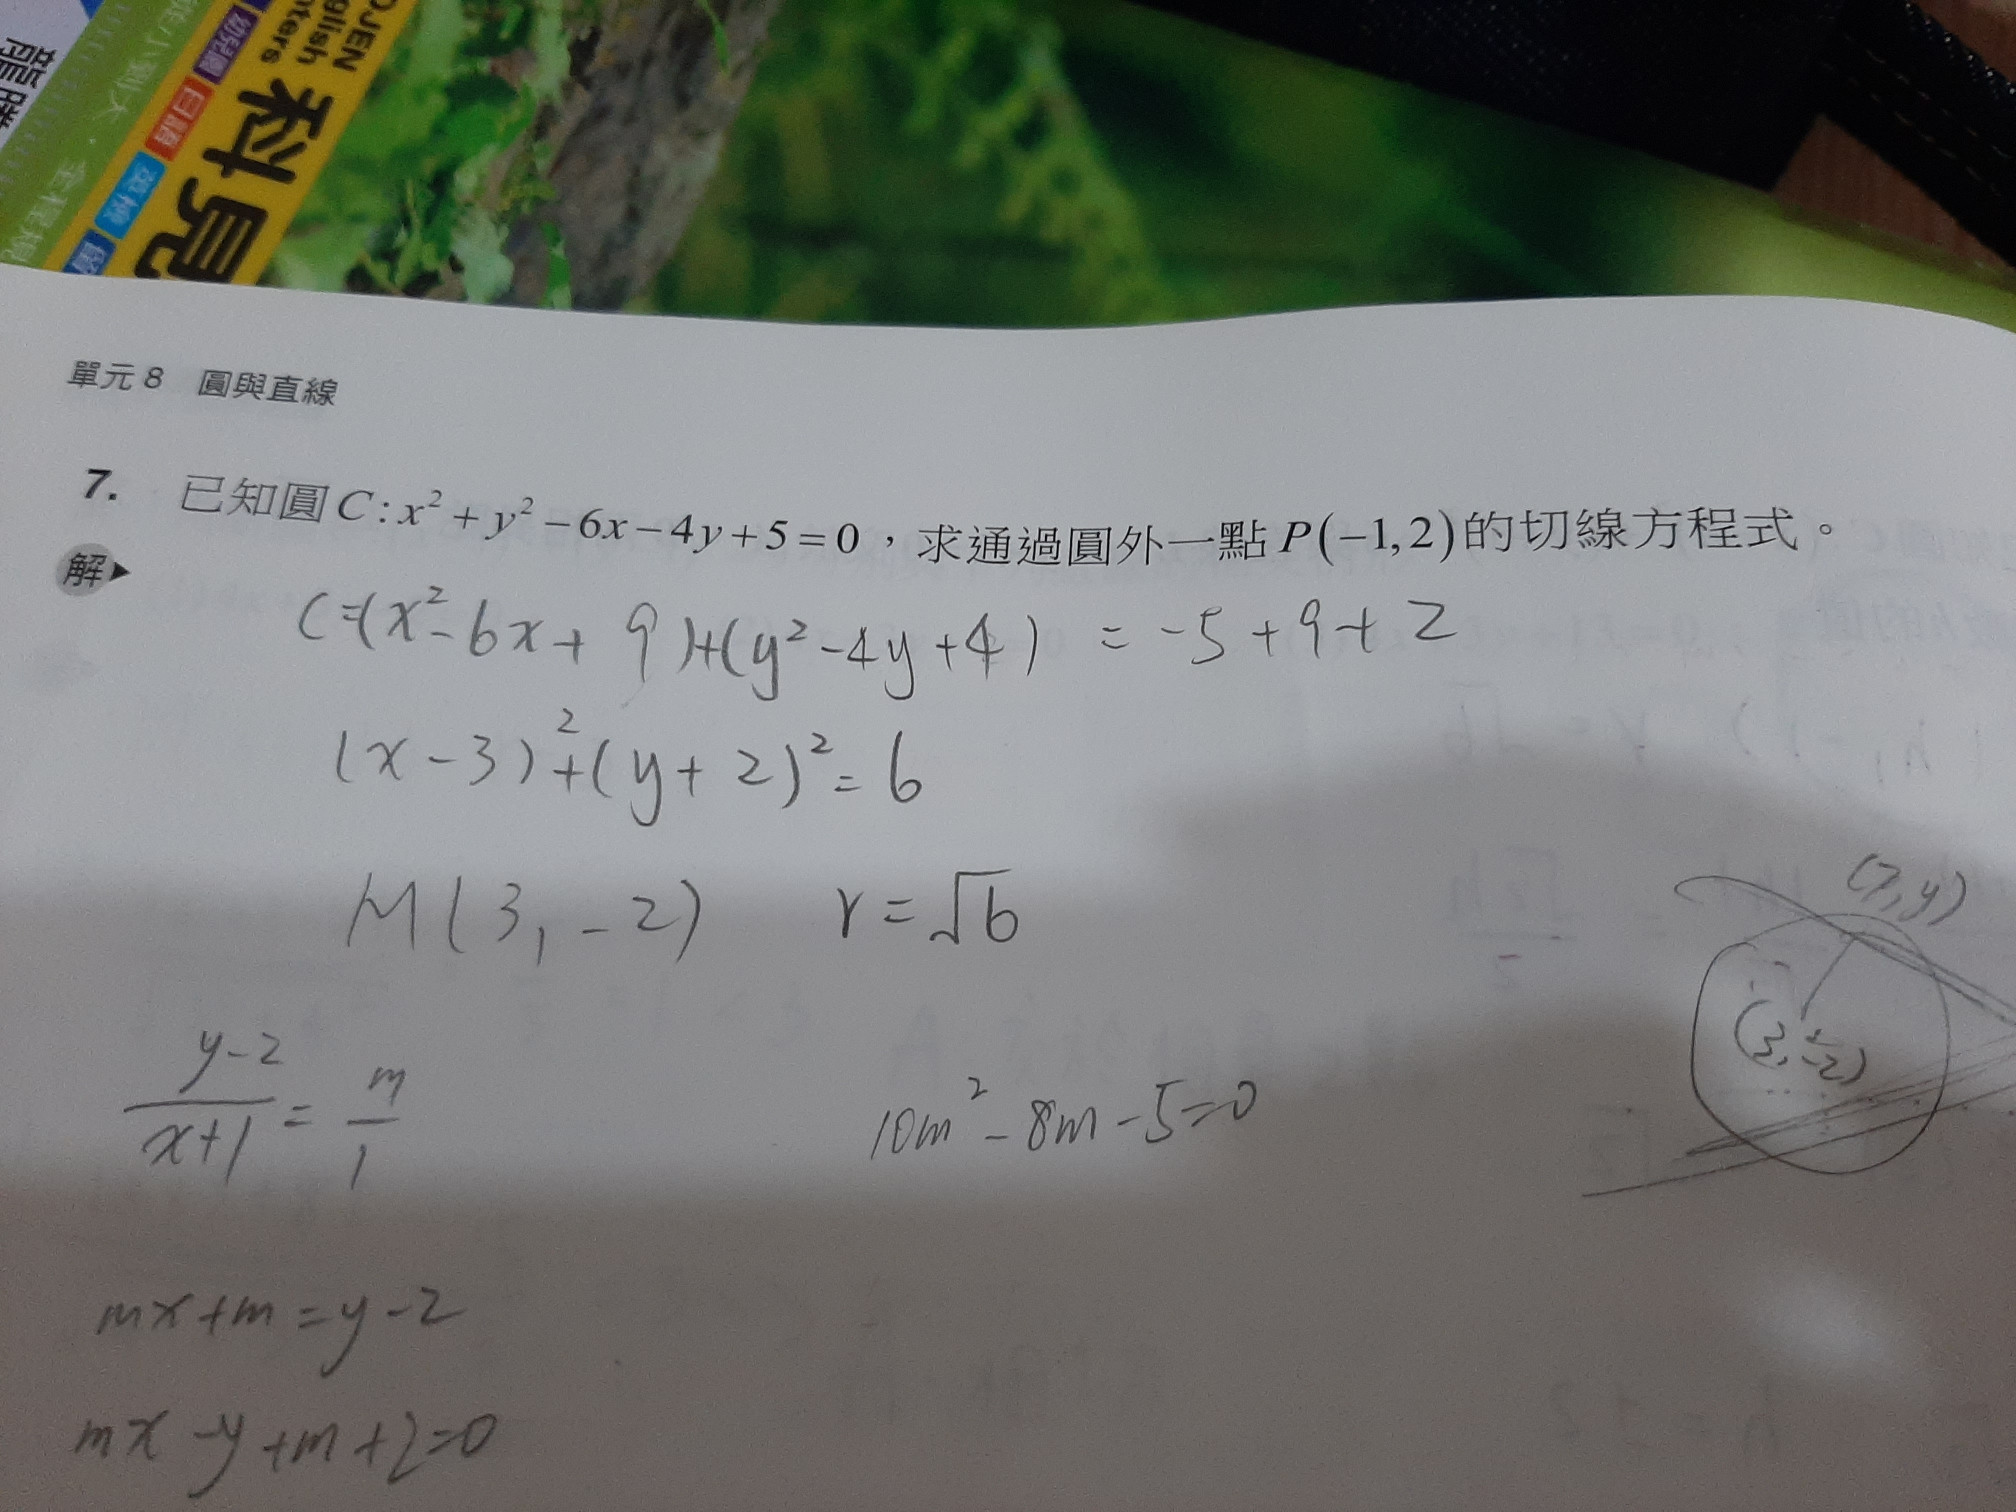 OJEN
glish
nters
科見
幼兒園
日語
單元8 圓與直線
7. 已知圓C:x²+y²−6x−4y+5=0，求通過圓外一點P(−1,2)的切線方程式。
解▶
C=(x²-6x+9)+(y²-4y+4) = -5+9+2
(x-3)²+(y+2)²=6
M(3,-2) r=√6
(7,y)
(3,-2)
y-2/x+1 = m/1
10m²-8m-5=0
mx+m=y-2
mx-y+m+2=0